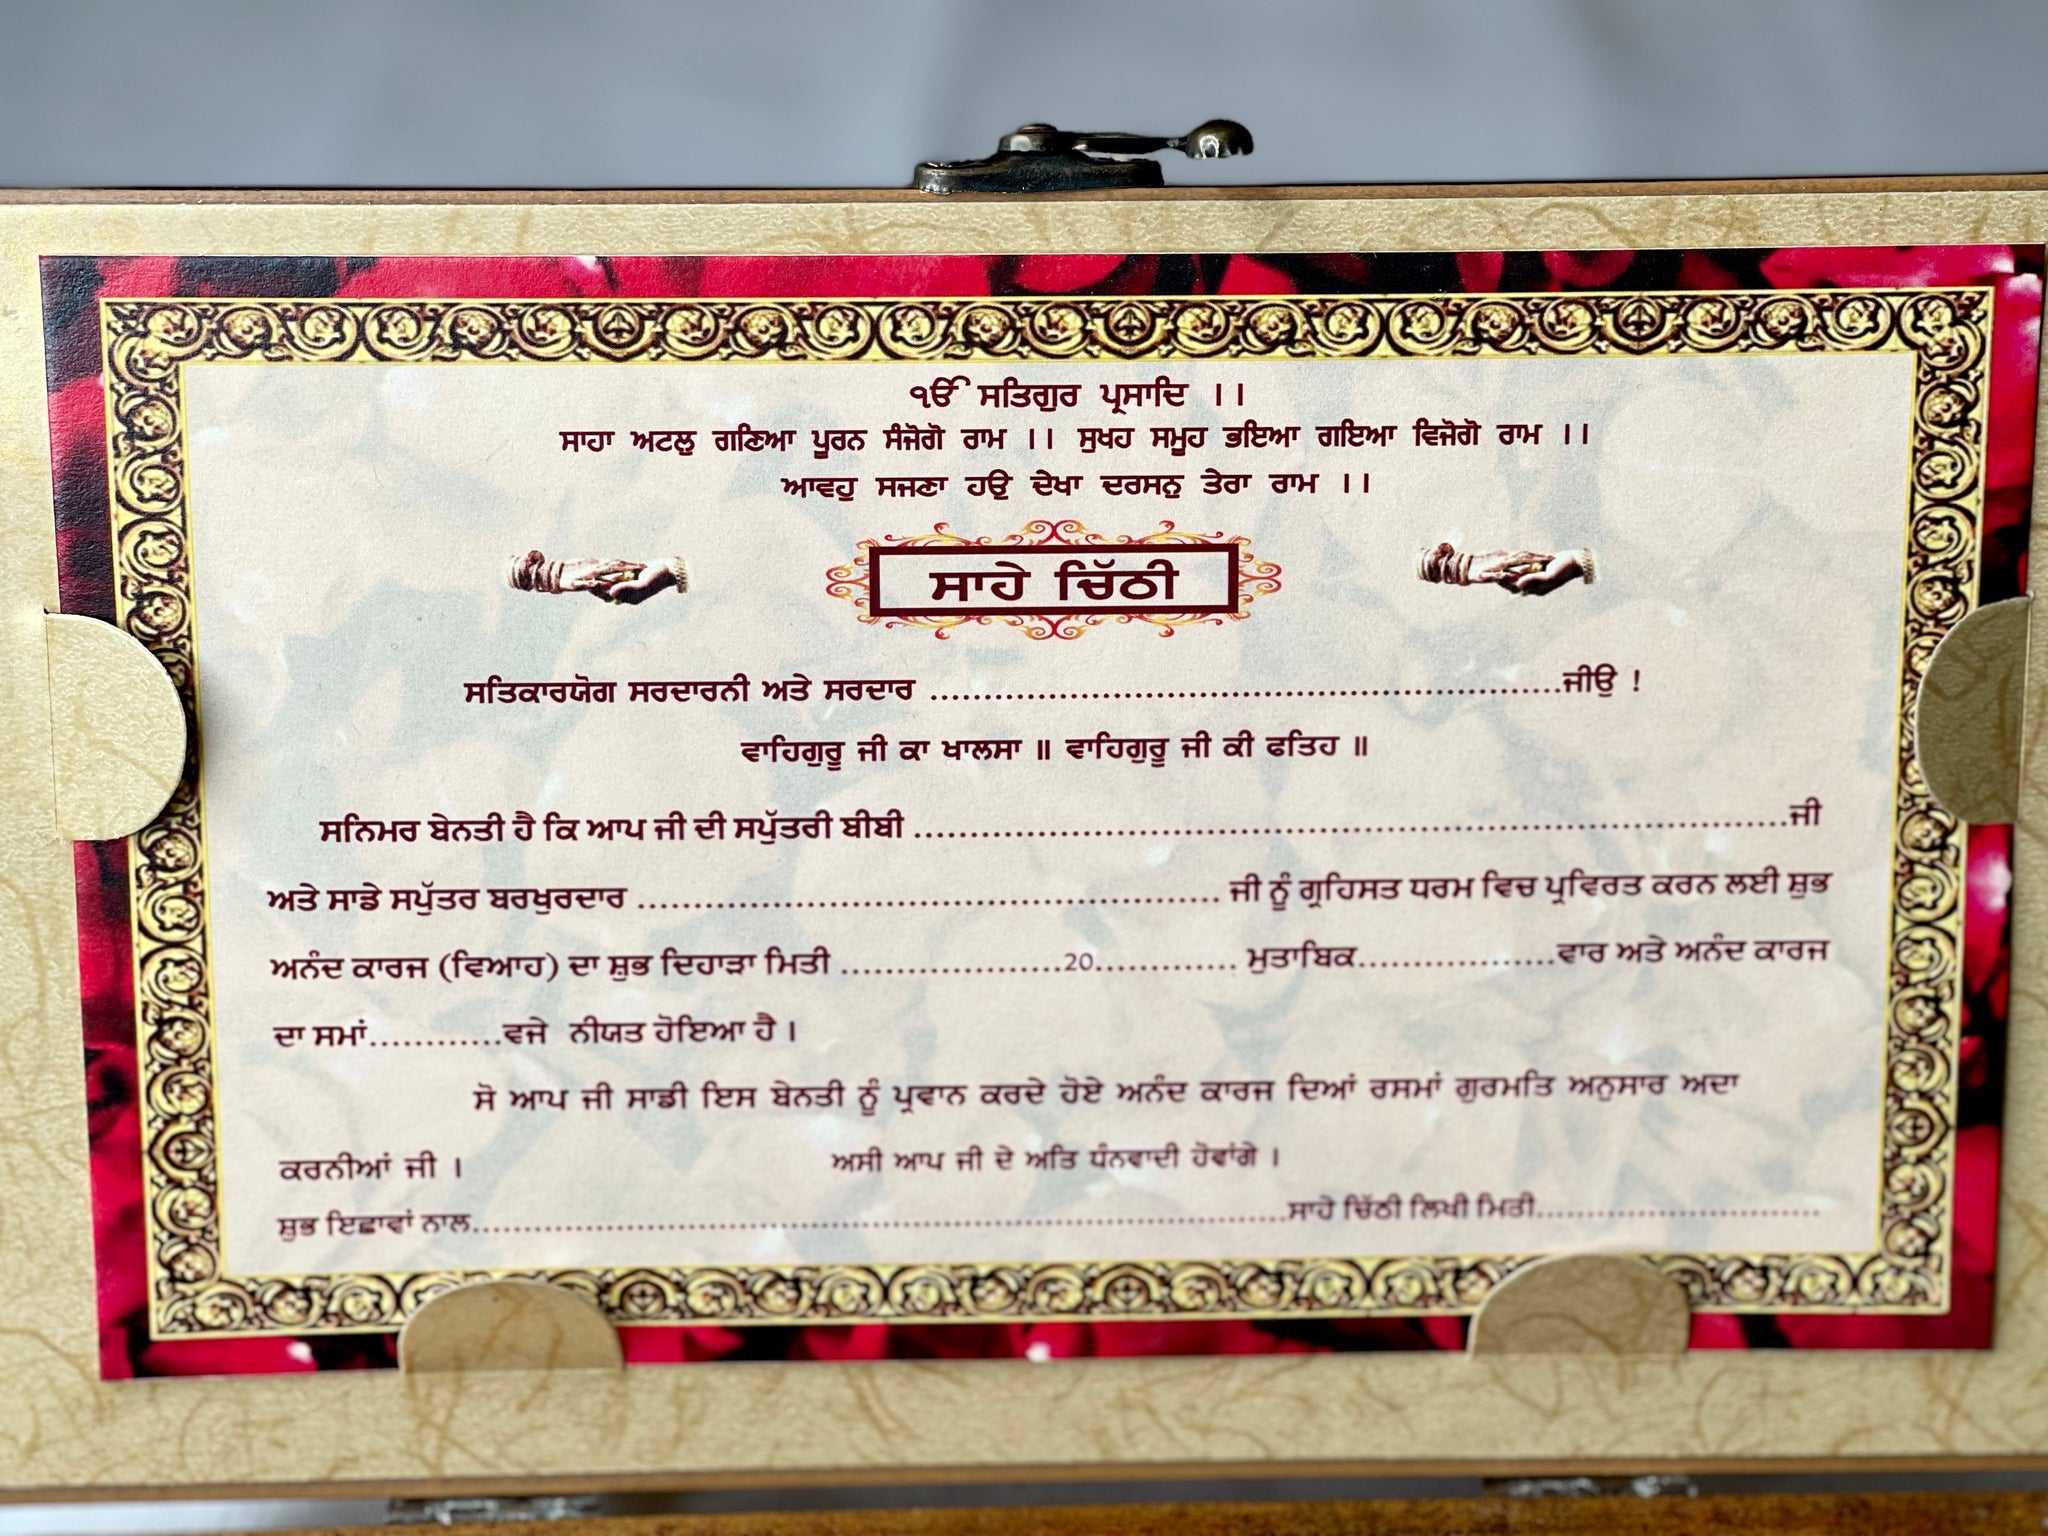 ੴ ਸਤਿਗੁਰ ਪ੍ਰਸਾਦਿ ।।
ਸਾਹਾ ਅਟਲੁ ਗਣਿਆ ਪੂਰਨ ਸੰਜੋਗੋ ਰਾਮ ।। ਸੁਖਹ ਸਮੂਹ ਭਇਆ ਗਇਆ ਵਿਜੋਗੋ ਰਾਮ ।।
ਆਵਹੁ ਸਜਣਾ ਹਉ ਦੇਖਾ ਦਰਸਨੁ ਤੇਰਾ ਰਾਮ ।।
ਸਾਹੇ ਚਿੱਠੀ
ਸਤਿਕਾਰਯੋਗ ਸਰਦਾਰਨੀ ਅਤੇ ਸਰਦਾਰ ............................................................ਜੀਉ !
ਵਾਹਿਗੁਰੂ ਜੀ ਕਾ ਖਾਲਸਾ ॥ ਵਾਹਿਗੁਰੂ ਜੀ ਕੀ ਫਤਿਹ ॥
ਸਨਿਮਰ ਬੇਨਤੀ ਹੈ ਕਿ ਆਪ ਜੀ ਦੀ ਸਪੁੱਤਰੀ ਬੀਬੀ ................................................................................ਜੀ
ਅਤੇ ਸਾਡੇ ਸਪੁੱਤਰ ਬਰਖੁਰਦਾਰ ..................................................... ਜੀ ਨੂੰ ਗ੍ਰਹਿਸਤ ਧਰਮ ਵਿਚ ਪ੍ਰਵਿਰਤ ਕਰਨ ਲਈ ਸ਼ੁਭ
ਅਨੰਦ ਕਾਰਜ (ਵਿਆਹ) ਦਾ ਸ਼ੁਭ ਦਿਹਾੜਾ ਮਿਤੀ ....................20............. ਮੁਤਾਬਿਕ..................ਵਾਰ ਅਤੇ ਅਨੰਦ ਕਾਰਜ
ਦਾ ਸਮਾਂ............ਵਜੇ ਨੀਯਤ ਹੋਇਆ ਹੈ ।
ਸੋ ਆਪ ਜੀ ਸਾਡੀ ਇਸ ਬੇਨਤੀ ਨੂੰ ਪ੍ਰਵਾਨ ਕਰਦੇ ਹੋਏ ਅਨੰਦ ਕਾਰਜ ਦਿਆਂ ਰਸਮਾਂ ਗੁਰਮਤਿ ਅਨੁਸਾਰ ਅਦਾ
ਕਰਨੀਆਂ ਜੀ । ਅਸੀ ਆਪ ਜੀ ਦੇ ਅਤਿ ਧੰਨਵਾਦੀ ਹੋਵਾਂਗੇ ।
ਸ਼ੁਭ ਇਛਾਵਾਂ ਨਾਲ...........................................................................ਸਾਹੇ ਚਿੱਠੀ ਲਿਖੀ ਮਿਤੀ..........................